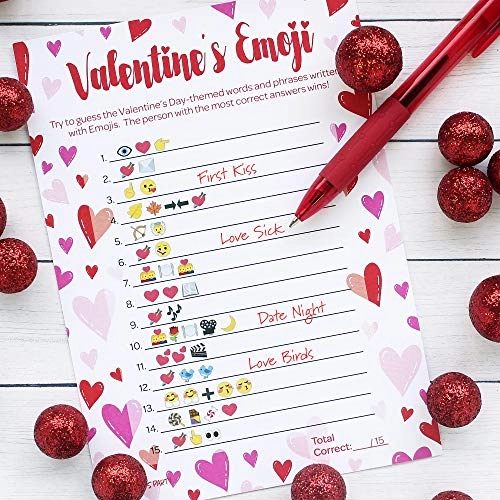 Valentine's Emoji
Try to guess the Valentine's Day-themed words and phrases written
with Emojis. The person with the most correct answers wins!
1.
2.
3. First Kiss
4.
5.
6. Love Sick
7.
8.
9.
10. Date Night
11.
12. Love Birds
13.
14.
15.
Total
Correct: /15